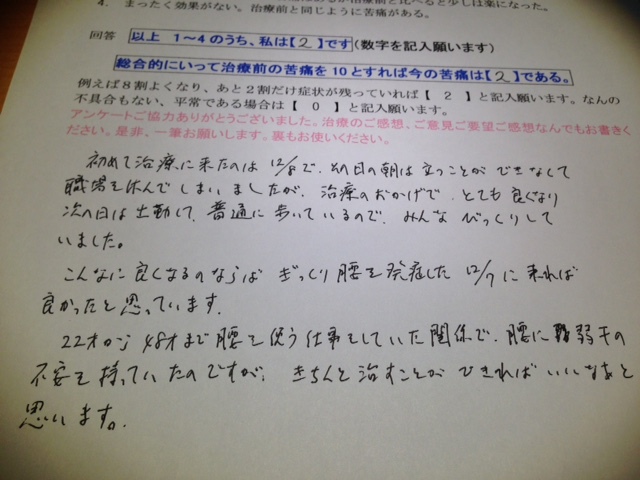 4. まったく効果がない。治療前と同じように苦痛がある。
回答 以上 1〜4のうち、私は【 2 】です(数字を記入願います)
総合的にいって治療前の苦痛を10とすれば今の苦痛は【 2 】である。
例えば8割よくなり、あと2割だけ症状が残っていれば【 2 】と記入願います。なんの
不具合もない、平常である場合は【 0 】と記入願います。
アンケートご協力ありがとうございました。治療のご感想、ご意見ご要望ご感想なんでもお書きく
ださい。是非、一筆お願いします。裏もお使いください。
初めて治療に来たのは 12/8で、その日の朝は立つことができなくて
職場を休んでしまいましたが、治療のおかげで、とても良くなり
次の日は出勤して、普通に歩いているので、みんなびっくりして
いました。
こんなに良くなるのならば ぎっくり腰を発症した 12/7に来れば
良かったと思っています。
22才から48才まで腰を使う仕事をしていた関係で、腰に若干の
不安を持っていたのですが、きちんと治すことができればいいなあと
思います。